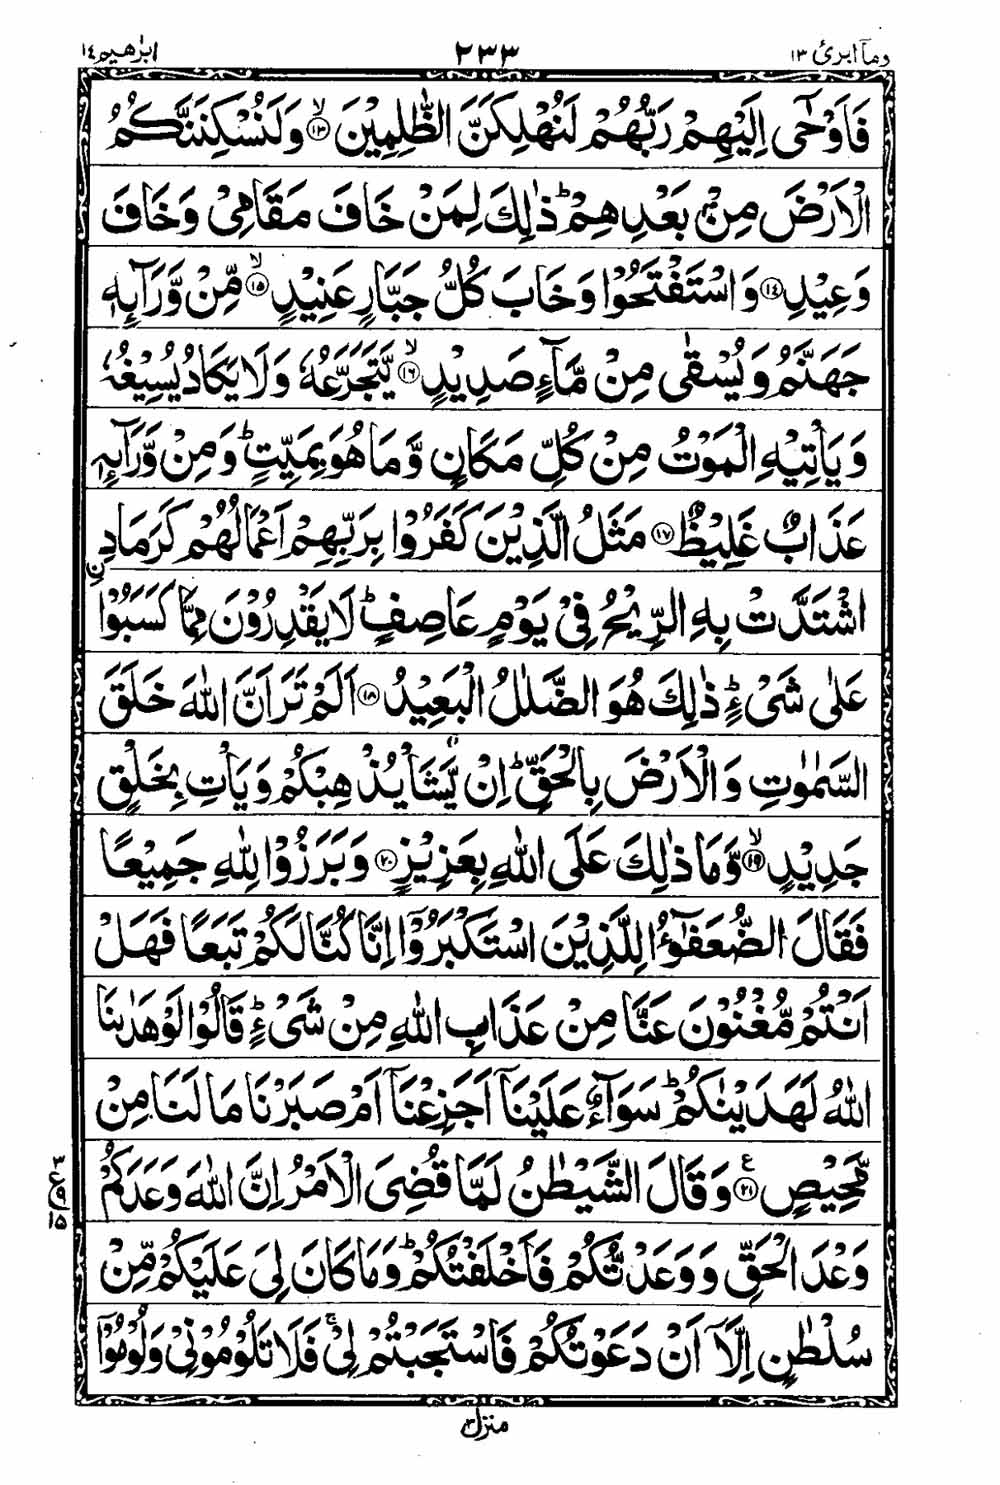 وماۤ ابرئ ١٣ ٢٣٣ ابرٰهيم ١٤
فَاَوْحٰۤى اِلَيْهِمْ رَبُّهُمْ لَنُهْلِكَنَّ الظّٰلِمِيْنَ ۙ﴿۱۳﴾ وَلَنُسْكِنَنَّكُمُ
الْاَرْضَ مِنْۢ بَعْدِهِمْ ؕ ذٰلِكَ لِمَنْ خَافَ مَقَامِيْ وَخَافَ
وَعِيْدِ ﴿۱۴﴾ وَاسْتَفْتَحُوْا وَخَابَ كُلُّ جَبَّارٍ عَنِيْدٍ ۙ﴿۱۵﴾ مِّنْ وَّرَآىِٕهٖ
جَهَنَّمُ وَيُسْقٰى مِنْ مَّآءٍ صَدِيْدٍ ۙ﴿۱۶﴾ يَّتَجَرَّعُهٗ وَلَا يَكَادُ يُسِيْغُهٗ
وَيَاْتِيْهِ الْمَوْتُ مِنْ كُلِّ مَكَانٍ وَّمَا هُوَ بِمَيِّتٍ ؕ وَمِنْ وَّرَآىِٕهٖ
عَذَابٌ غَلِيْظٌ ﴿۱۷﴾ مَثَلُ الَّذِيْنَ كَفَرُوْا بِرَبِّهِمْ اَعْمَالُهُمْ كَرَمَادِ ۟ن
اشْتَدَّتْ بِهِ الرِّيْحُ فِيْ يَوْمٍ عَاصِفٍ ؕ لَا يَقْدِرُوْنَ مِمَّا كَسَبُوْا
عَلٰى شَيْءٍ ؕ ذٰلِكَ هُوَ الضَّلٰلُ الْبَعِيْدُ ﴿۱۸﴾ اَلَمْ تَرَ اَنَّ اللّٰهَ خَلَقَ
السَّمٰوٰتِ وَالْاَرْضَ بِالْحَقِّ ؕ اِنْ يَّشَاْ يُذْهِبْكُمْ وَيَاْتِ بِخَلْقٍ
جَدِيْدٍ ۙ﴿۱۹﴾ وَّمَا ذٰلِكَ عَلَى اللّٰهِ بِعَزِيْزٍ ﴿۲۰﴾ وَبَرَزُوْا لِلّٰهِ جَمِيْعًا
فَقَالَ الضُّعَفٰٓؤُا لِلَّذِيْنَ اسْتَكْبَرُوْۤا اِنَّا كُنَّا لَكُمْ تَبَعًا فَهَلْ
اَنْتُمْ مُّغْنُوْنَ عَنَّا مِنْ عَذَابِ اللّٰهِ مِنْ شَيْءٍ ؕ قَالُوْا لَوْ هَدٰىنَا
اللّٰهُ لَهَدَيْنٰكُمْ ؕ سَوَآءٌ عَلَيْنَاۤ اَجَزِعْنَاۤ اَمْ صَبَرْنَا مَا لَنَا مِنْ
مَّحِيْصٍ ﴿۲۱﴾ ع وَقَالَ الشَّيْطٰنُ لَمَّا قُضِيَ الْاَمْرُ اِنَّ اللّٰهَ وَعَدَكُمْ
وَعْدَ الْحَقِّ وَوَعَدْتُّكُمْ فَاَخْلَفْتُكُمْ ؕ وَمَا كَانَ لِيَ عَلَيْكُمْ مِّنْ
سُلْطٰنٍ اِلَّاۤ اَنْ دَعَوْتُكُمْ فَاسْتَجَبْتُمْ لِيْ ۚ فَلَا تَلُوْمُوْنِيْ وَلُوْمُوْۤا
منزل ٣